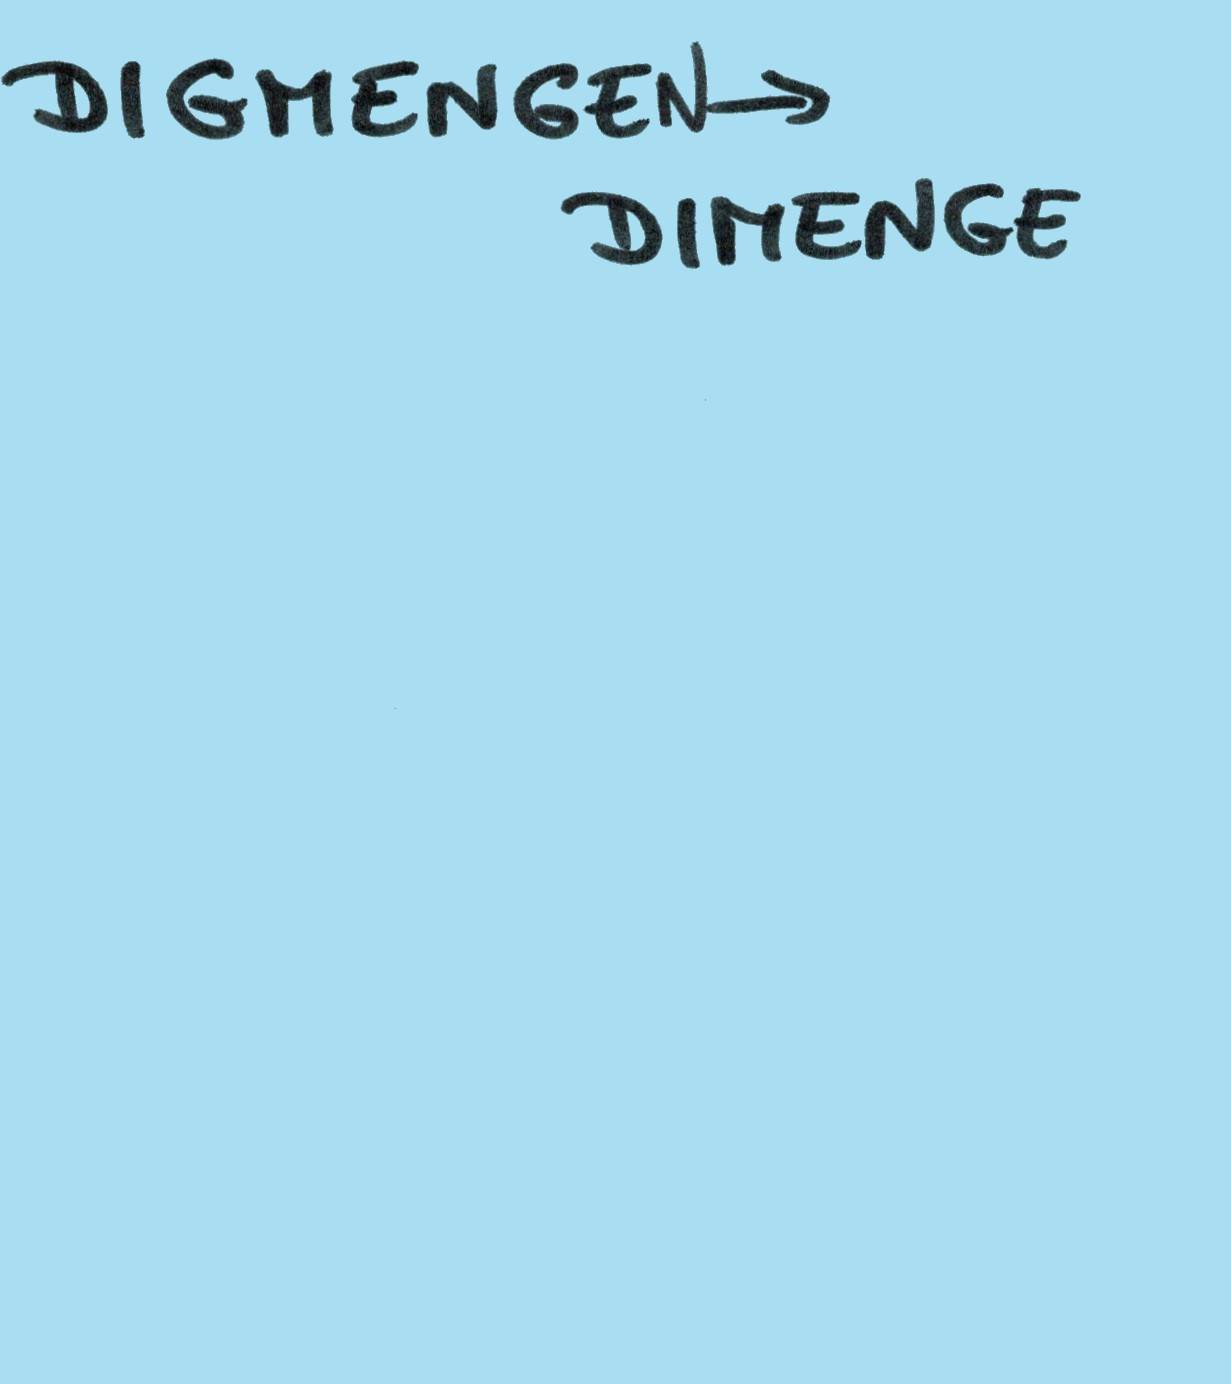 DIGMENGEN→
DIMENGE